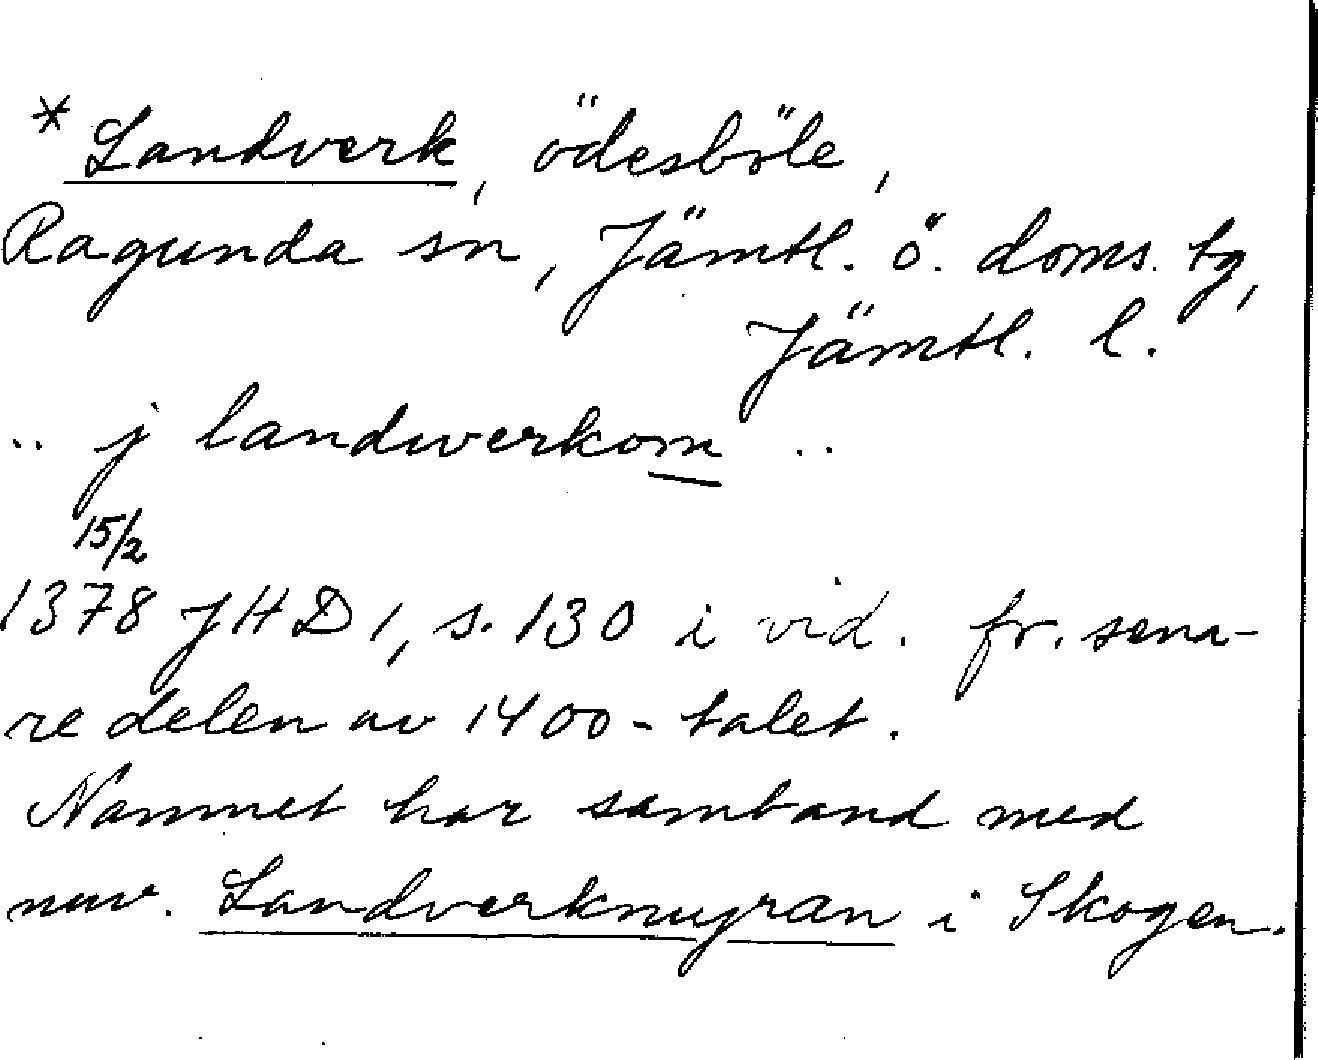 * Landverk, ödesböle,
Ragunda sn, Jämtl. ö. doms. tg,
Jämtl. l.
.. j landwerkom ..
15/2
1378 JHD 1, s. 130 i vid. fr. sena-
re delen av 1400-talet.
Namnet har samband med
nuv. Landverkmyran i Skogen.